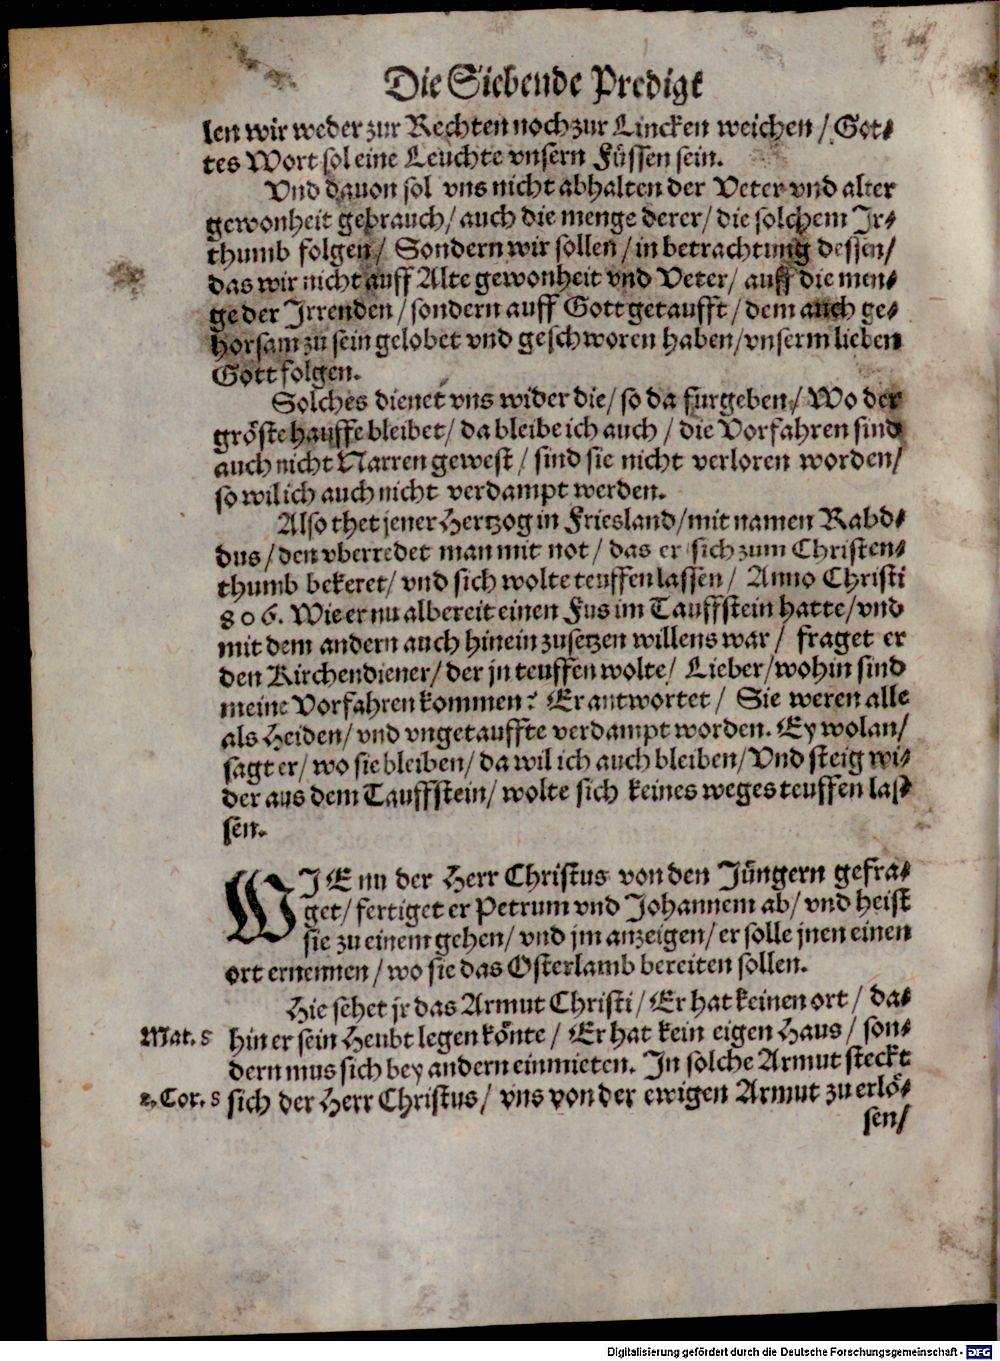 Die Siebende Predigt
len wir weder zur Rechten noch zur Lincken weichen / Got⸗
tes Wort sol eine Leuchte vnsern Füssen sein.
Vnd dauon sol vns nicht abhalten der Veter vnd alter
gewonheit gebrauch / auch die menge derer / die solchem Jr⸗
thumb folgen / Sondern wir sollen / in betrachtung dessen /
das wir nicht auff Alte gewonheit vnd Veter / auff die men⸗
ge der Jrrenden / sondern auff Gott getaufft / dem auch ge⸗
horsam zu sein gelobet vnd geschworen haben / vnserm lieben
Gott folgen.
Solches dienet vns wider die / so da furgeben / Wo der
gröste hauffe bleibet / da bleibe ich auch / die Vorfahren sind
auch nicht Narren gewest / sind sie nicht verloren worden /
so wil ich auch nicht verdampt werden.
Also thet jener Hertzog in Friesland / mit namen Rabd⸗
dus / den vberredet man mit not / das er sich zum Christen⸗
thumb bekeret / vnd sich wolte teuffen lassen / Anno Christi
806. Wie er nu albereit einen Fus im Tauffstein hatte / vnd
mit dem andern auch hinein zusetzen willens war / fraget er
den Kirchendiener / der jn teuffen wolte / Lieber / wohin sind
meine Vorfahren kommen? Er antwortet / Sie weren alle
als Heiden / vnd vngetauffte verdampt worden. Ey wolan /
sagt er / wo sie bleiben / da wil ich auch bleiben / Vnd steig wi⸗
der aus dem Tauffstein / wolte sich keines weges teuffen las⸗
sen.
WJE nu der Herr Christus von den Jüngern gefra⸗
get / fertiget er Petrum vnd Johannem ab / vnd heist
sie zu einem gehen / vnd jm anzeigen / er solle jnen einen
ort ernennen / wo sie das Osterlamb bereiten sollen.
Hie sehet jr das Armut Christi / Er hat keinen ort / da⸗
Mat. 8 hin er sein Heubt legen könte / Er hat kein eigen Haus / son⸗
dern mus sich bey andern einmieten. In solche Armut steckt
2. Cor. 8 sich der Herr Christus / vns von der ewigen Armut zu erlö⸗
sen /
Digitalisierung gefördert durch die Deutsche Forschungsgemeinschaft - DFG